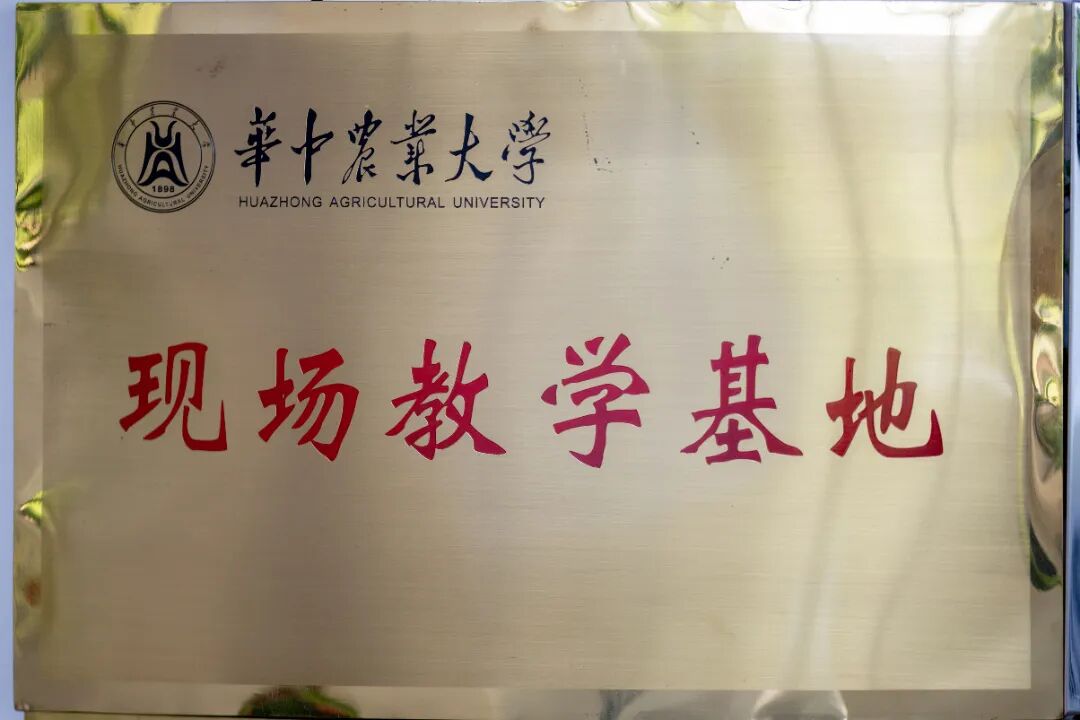 華中農業大學
HUAZHONG AGRICULTURAL UNIVERSITY
1898
HUAZHONG AGRICULTURAL UNIVERSITY
现场教学基地